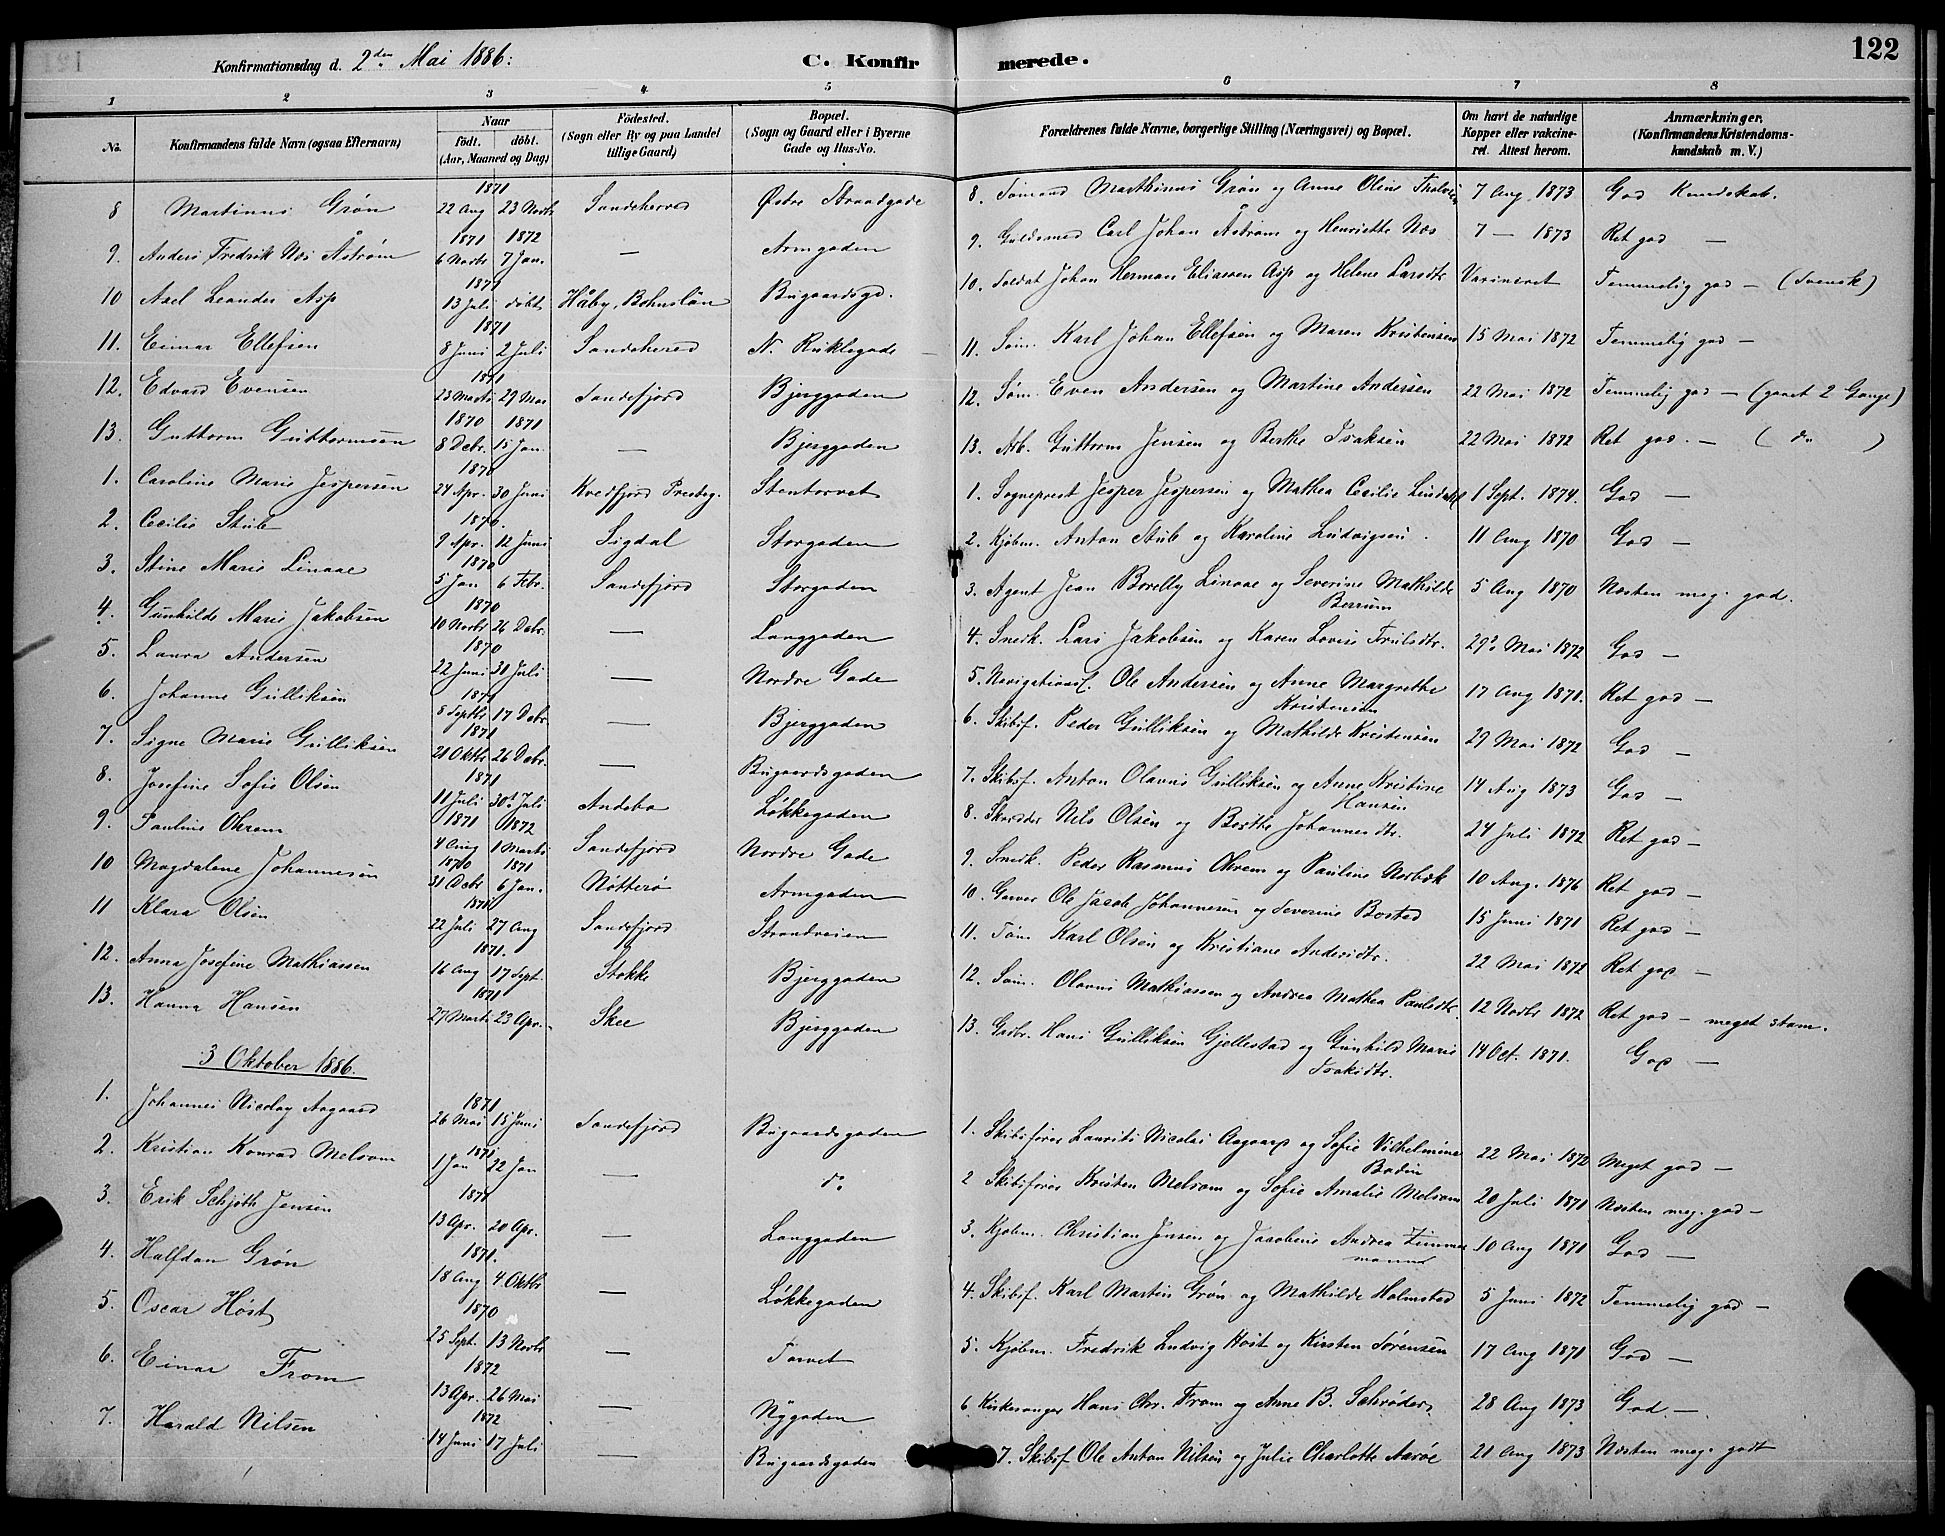 Konfirmationsdag d. 2den Mai 1886. C. Konfirmerede. 122
1 2 3 4 5 6 7 8
No. Konfirmandens fulde Navn (ogsaa Efternavn) Naar födt. döbt. (Aar, Maaned og Dag) Födested. (Sogn eller By og paa Landet tillige Gaard) Bopæl. (Sogn og Gaard eller i Byerne Gade og Hus-No. Forældrenes fulde Navne, borgerlige Stilling (Næringsvei) og Bopæl. Om havt de naturlige Kopper eller vakcineret. Attest herom. Anmærkninger. (Konfirmandens Kristendomskundskab m. V.)
8 Martinus Grøn 1871 22 Aug 23 Novbr Sandeherred Østre Strandgade 8. Sømand Marthinus Grøn og Anne Oline 7 Aug 1873 God Kundskab.
9. Anders Fredrik Næs Åstrøm 1871 6 Novbr 1872 7 Jan. — Armgaden 9. Guldsmed Carl Johan Åstrøm og Henriette Næs 7 — 1873 Ret god —
10 Axel Leander Asp 1871 13 Juli döbt Håby, Bohuslän Bugaardsgd. 10. Soldat Johan Herman Eliassen Asp og Helene Larsdtr Vaxineret Temmelig god — (Svensk)
11. Einar Ellefsen 1871 8 Juni 2 Juli Sandeherred N. Ruklegade 11. Søm. Karl Johan Ellefsen og Maren Kristensen 15 Mai 1872 Temmelig god —
12. Edvard Evensen 1871 23 Marts 29 Mai Sandefjord Bjerggaden 12. Søm. Even Andersen og Martine Andersen 22 Mai 1872 Temmelig god — (gaaet 2 Gange)
13. Guttorm Guttormsen 1870 8 Debr. 1871 15 Jan. — Bjerggaden 13. Arb. Guttorm Jensen og Berthe Isaksen 22 Mai 1872 Ret god. — ( do )
1. Caroline Marie Jespersen 1870 24 Apr. 30 Juni Kvedfjord Presteg. Stentorvet 1. Sogneprest Jesper Jespersen og Mathea Cecilie Lindahl 1 Sept. 1874. God —
2. Cecilie Stub 1870. 9 Apr. 12 Juni Sigdal Storgaden 2. Kjøbm. Anton Stub og Karoline Ludvigsen. 11 Aug 1870 God —
3. Stine Marie Linaae 1870 5 Jan 6 Febr. Sandefjord Storgaden 3. Agent Jean Borelly Linaae og Severine Mathilde Berrum 5 Aug 1870 Næsten meg. god.
4. Gunhilde Marie Jakobsen 1870 10 Novbr 26 Debr. — Langgaden 4. Snedk. Lars Jakobsen og Karen Lovise Trulsdtr. 29 Mai 1872 God —
5. Laura Andersen 1870 22 Juni 31 Juli — Nordre Gade 5. Navigationsl. Ole Andersen og Anne Margrethe Kristensen 17 Aug 1871. Ret god —
6. Johanne Gulliksen 1871 8 Septbr 17 Debr. — Bjerggaden 6. Skibsf. Peder Gulliksen og Mathilde Kristensen 29 Mai 1872 God —
7. Signe Marie Gulliksen 1871 21 Oktbr 26 Debr. — Bugaardsgaden 7. Skibsf. Anton Olavus Gulliksen og Anne Kristine Hansen 14 Aug 1873 God —
8. Josefine Sofie Olsen 1871 11 Juli 30 Juli Andebo Løkkegaden 8. Skrædder Nils Olsen og Berthe Johannesdtr. 24 Juli 1872 Ret god —
9. Pauline Ohrem 1871 4 Aug 1872 1 Marts Sandefjord Nordre Gade 9. Snedk. Peder Rasmus Ohrem og Pauline Norbæk 10 Aug. 1876 Ret god —
10 Magdalene Johannesen 1870 31 Debr 1871 6 Jan. Nøtterø Armgaden 10. Garver Ole Jacob Johannesen og Severine Bostad 15 Juni 1871 Ret god —
11 Klara Olsen 1871 22 Juli 27 Aug Sandefjord Strandveien 11. Søm Karl Olsen og Kristiane Andersdtr. 22 Mai 1872 Ret god —
12. Anna Josefine Mathiassen 1871. 16 Aug 17 Sept. Stokke Bjerggaden 12. Søm. Olavus Mathiassen og Andrea Mathea Paulsdtr. 12 Novbr 1872 Ret god — meget stam.
13. Hanna Hansen 1871 27 Marts 23 Apr. Skee Bjerggaden 13. Gadbr. Hans Gulliksen Gjellestad og Gunhild Marie Isaksdtr. 14 Oct. 1871. God —
3 Oktober 1886.
1. Johannes Nicolay Aagaard 1871 26 Mai 18 Juni Sandefjord Bugaardsgaden 1. Skibsfører Laurits Nicolai Aagaard og Sofie Vilhelmine Bodin 22 Mai 1872 Meget god —
2. Kristian Konrad Melsom 1871 1 Jan 22 Jan — do 2 Skibsfører Kristen Melsom og Sofie Amalie Melsom 20 Juli 1871 Næsten meg. god —
3. Erik Schjøth Jensen 1871 13 Apr. 20 Apr. — Langgaden 3. Kjøbm. Christian Jensen og Jacobine Andrea Zimmermann 10 Aug 1871 God —
4. Halfdan Grøn 1871. 18 Aug 4 Oktbr — Løkkegaden 4. Skibsf. Karl Martin Grøn og Mathilde Holmstad 5 Juni 1872 Temmelig god —
5. Oscar Høst 1870 25 Sept. 13 Novbr — Torvet 5. Kjøbm. Fredrik Ludvig Høst og Kirsten Sørensen 17 Aug 1871 God —
6. Einar From 1872 13 Apr. 26 Mai — Nygaden 6 Kirkesanger Hans Chr. From og Anne B. Schrøder, 28 Aug 1873 God. —
7. Harald Nilsen 1872 14 Juni 17 Juli — Bugaardsgaden 7. Skibsf Ole Anton Nilsen og Julie Charlotte Aarøe 21 Aug 1873 Næsten meg. godt